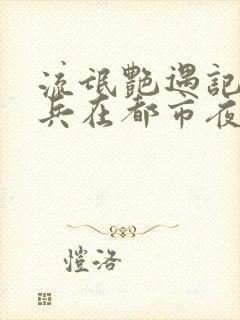 流氓艷遇記
兵在都市夜
愷洛